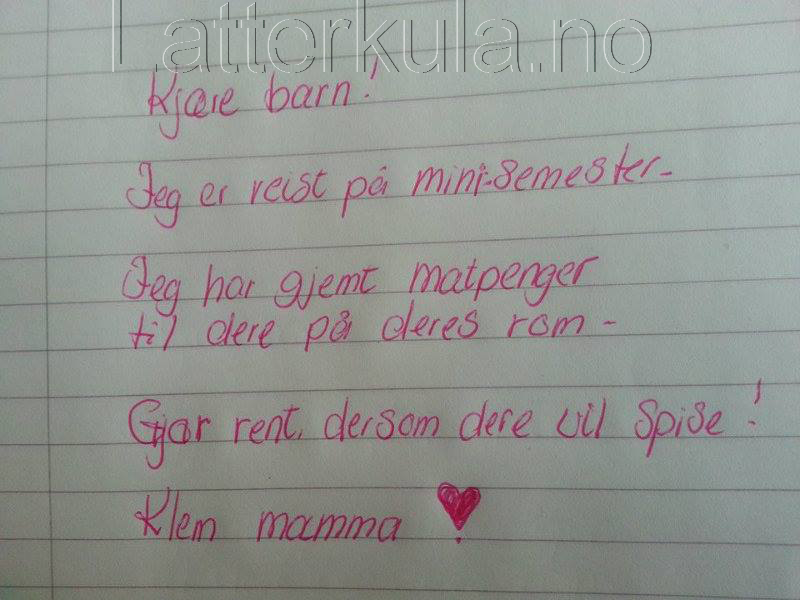 Latterkula.no
Kjære barn!
Jeg er reist på mini-semester-
Jeg har gjemt matpenger
til dere på deres rom -
Gjør rent, dersom dere vil spise!
Klem mamma